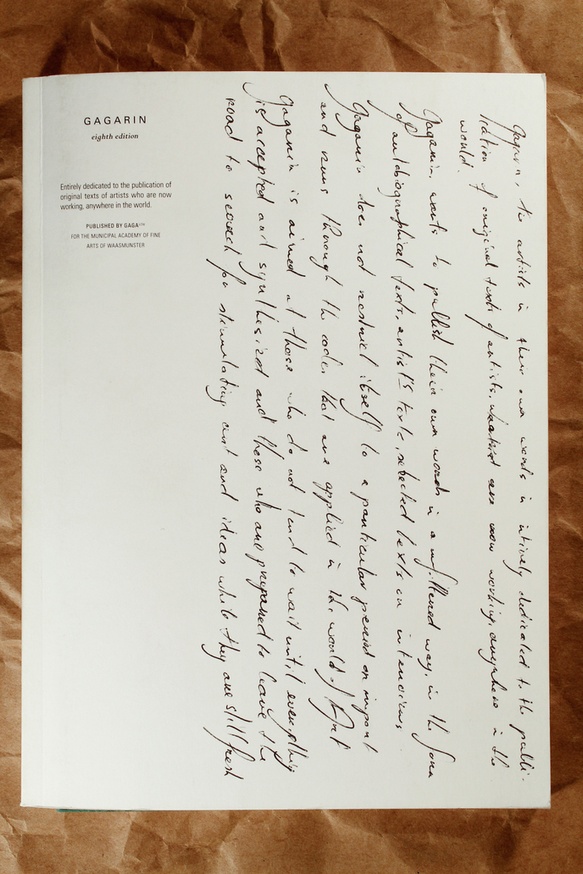 GAGARIN
eighth edition
Entirely dedicated to the publication of
original texts of artists who are now
working, anywhere in the world.
PUBLISHED BY GAGA
FOR THE MUNICIPAL ACADEMY OF FINE
ARTS OF WAASMUNSTER
Gagarin the artists in their own words is entirely dedicated to the publi-
cation of original texts of artists, are now working, anywhere in the
world.
Gagarin wants to publish their own words in a unfiltered way, in the form
of autobiographical texts, artist's texts, selected texts or interviews.
Gagarin does not restrict itself to a particular period or import
and runs through the codes that are applied in the world of Art
Gagarin is aimed at those who do not tend to wait until everything
is accepted and synthesized and those who are prepared to leave the
road to search for stimulating art and ideas while they are still fresh